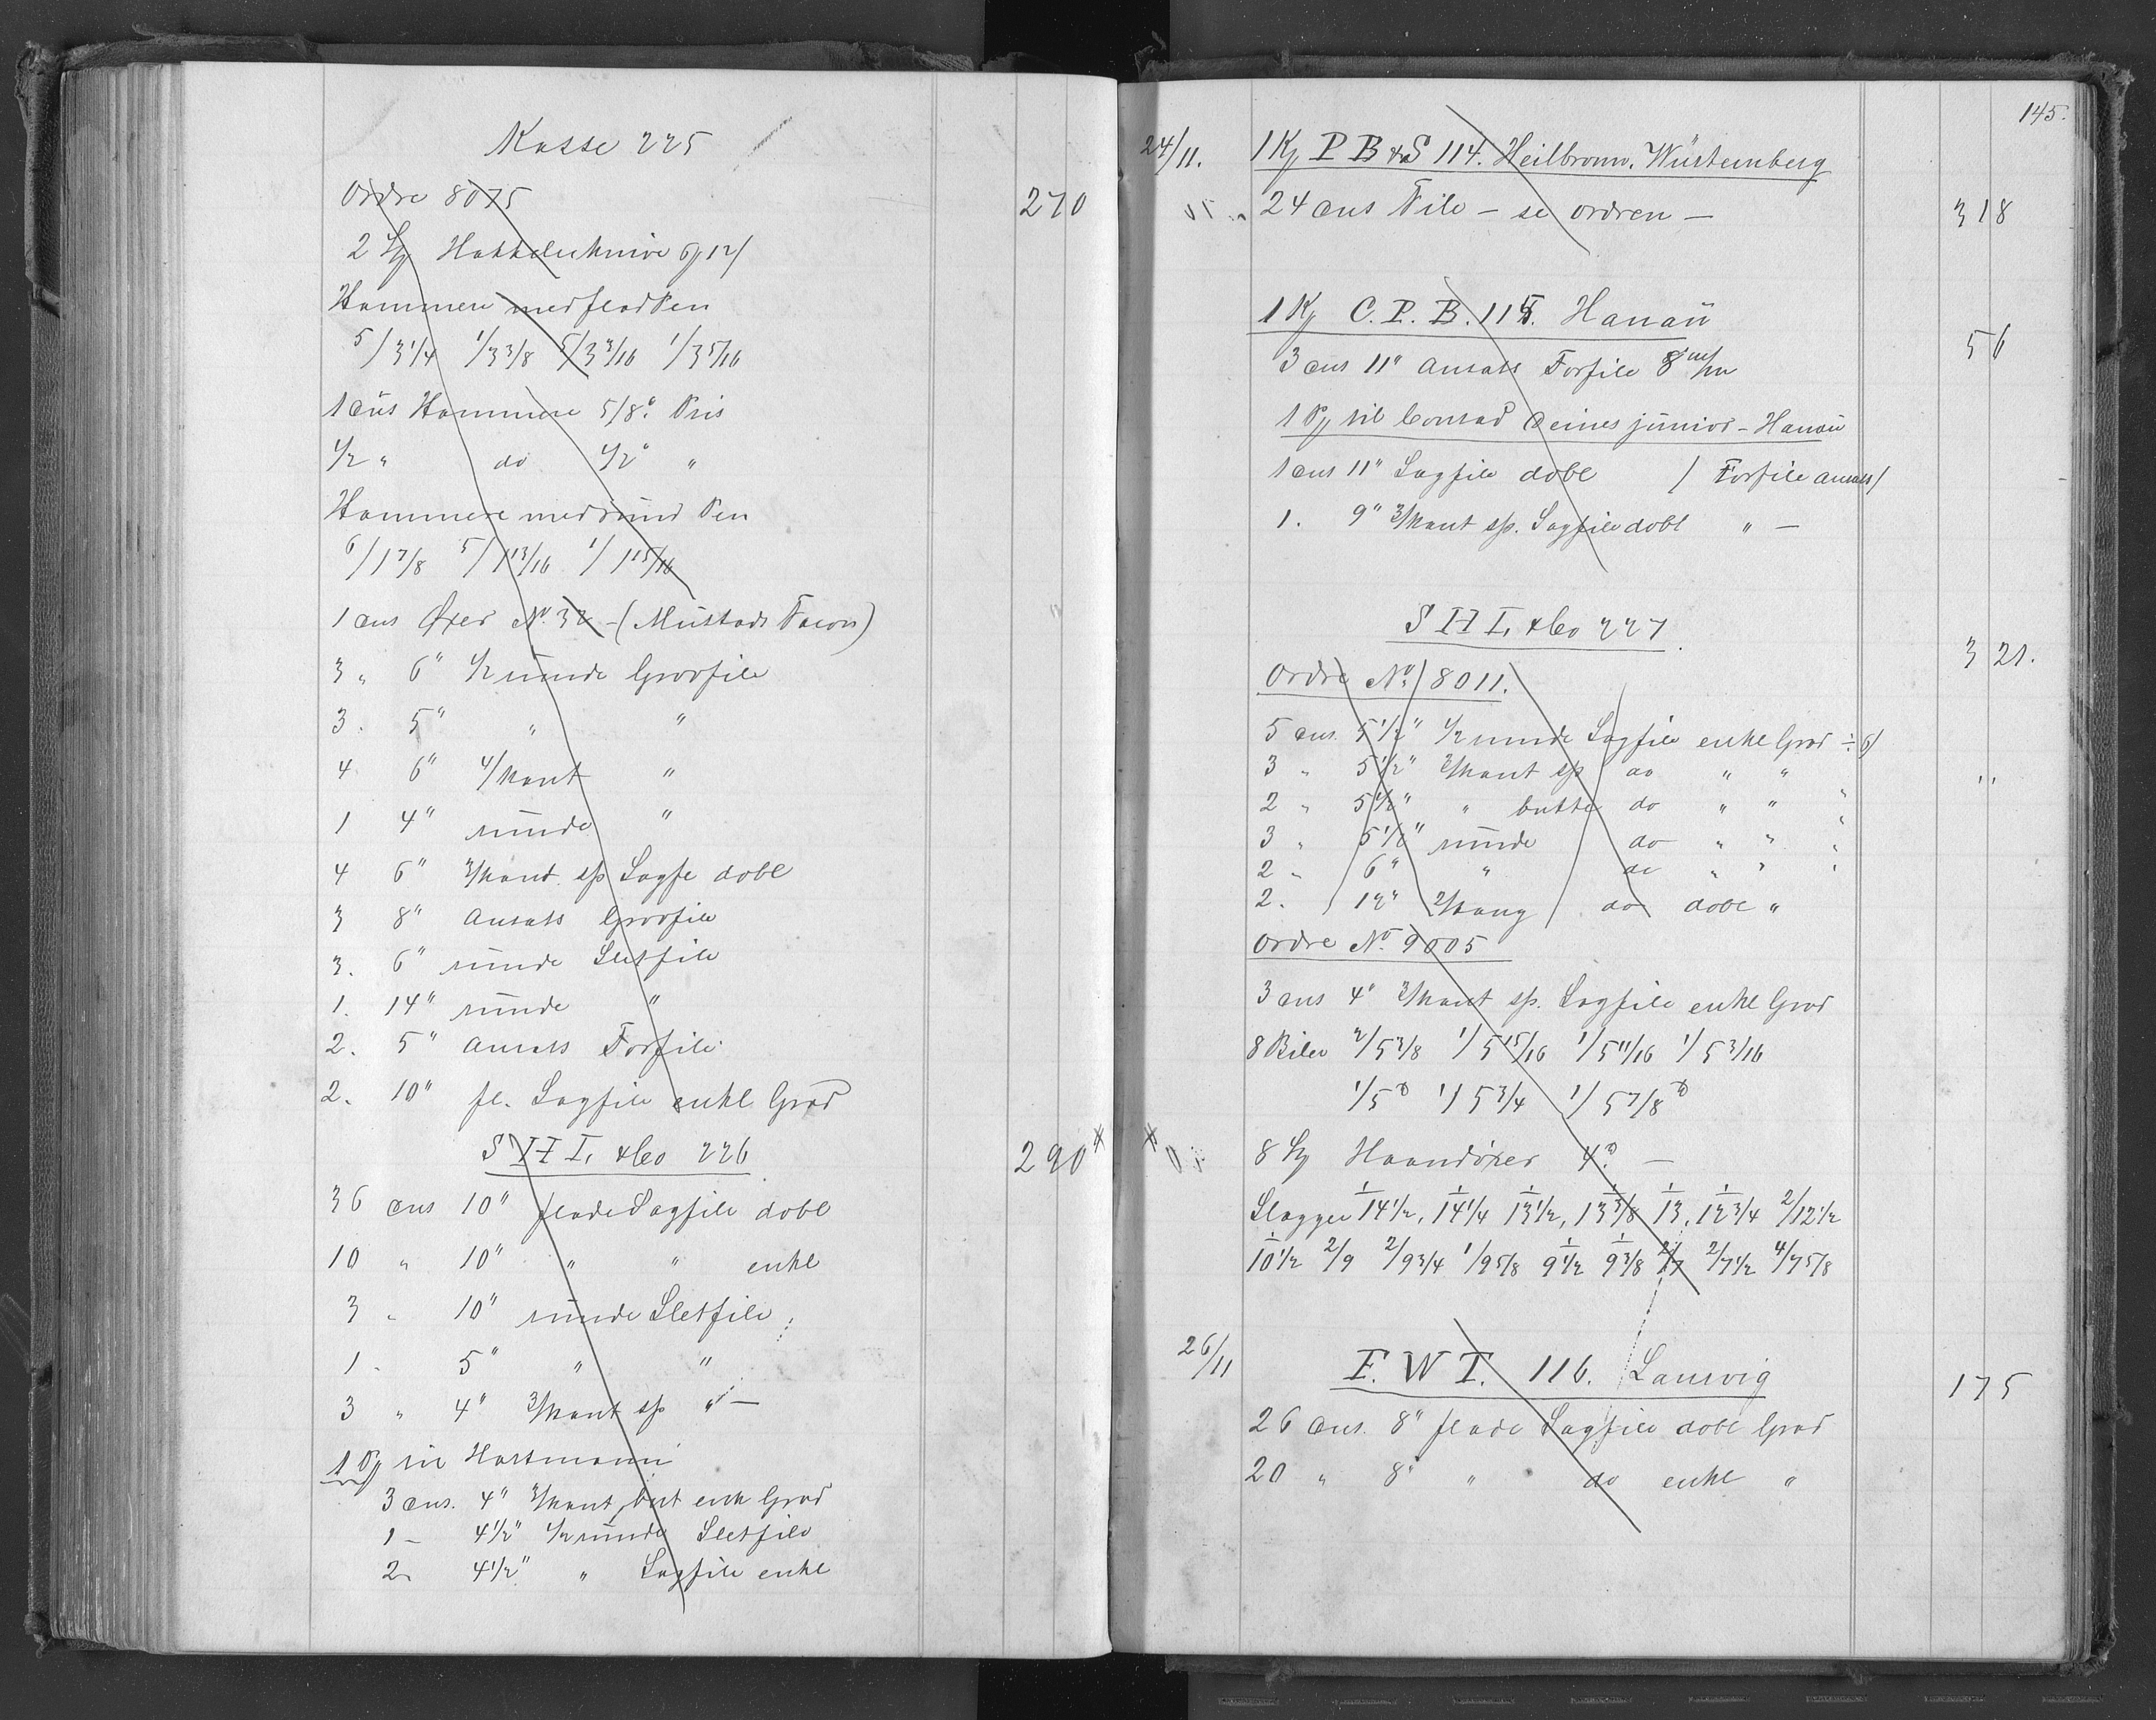 Kasse 225
Ordre 8075 270
2 Kj Hakkelseknive 6/12/
Hammere med flad Pen
5/3 1/4 1/3 3/8 5/3 3/16 1/3 5/16
1 dus Hammere 5/8" Pris
1/2 " do 1/2" "
Hammere med rund Pen
6/1 7/8 5/1 13/16 1/1 15/16
1 dus Øxer No. 32 - (Mustads Facon)
3 " 6" 1/2 runde Grovfile
3 . 5" " "
4 6" 4/kant "
1 4" runde "
4 6" 3/kant sp Sagfe dobl
3 8" Ansats Grovfile
3. 6" runde Sletfile
1. 14" runde "
2. 5" Ansats Forfile
2. 10" fl. Sagfile enkl Grad
S H L & Co 226 290
36 dus 10" flade Sagfile dobl
10 " 10" " " enkl
3 " 10" runde Sletfile
1 - 5" " "
3 " 4" 3/kant sp " —
1 Pj til Hartmann
3 dus. 4" 3/kant but enk Grad
1 - 4 1/2" 1/2 runde Sletfile
2 4 1/2" " Sagfile enkl
145.
24/11. 1 Kj P B & S 114. Heilbronn. Würtemberg
24 dus File - se ordren - 318
1 Kj C. P. B. 115. Hanau
3 dus 11" Ansats Forfile 8 m/m 56
1 Pj til Conrad Deines junior - Hanau
1 dus 11" Sagfile dobl / Forfile Ansats /
1. 9" 3/kant sp. Sagfile dobl " —
S H L & Co 227
321.
Ordre No. 8011.
5 dus. 5 1/2" 1/2 runde Sagfile enkl Grad ÷ 6/
3 " 5 1/2" 3/kant sp do " "
2 " 5 1/2" " butte do " " "
3 " 5 1/2" runde do " " "
2 " 6" " do " " "
2. 12" do dobl "
Ordre No. 9005
3 dus 4" 3/kant sp. Sagfile enkl Grad
8 Biler 2/5 3/8 1/5 15/16 1/5 11/16 1/5 3/16
1/5 1/5 3/4 1/5 7/8
8 Kj Haandøxer 4 —
Slægger 1/14 1/2, 1/14 1/4 1/13 1/2, 1/13 3/8 1/13, 1/12 3/4 2/12 1/2
1/10 1/2 2/9 2/9 3/4 1/9 5/8 1/9 1/2 1/9 3/8 2/7 2/7 1/2 4/7 5/8
26/11 F. W T. 116. Laurvig 175
26 dus. 8" flade Sagfile dobl Grad
20 " 8" " do enkl "